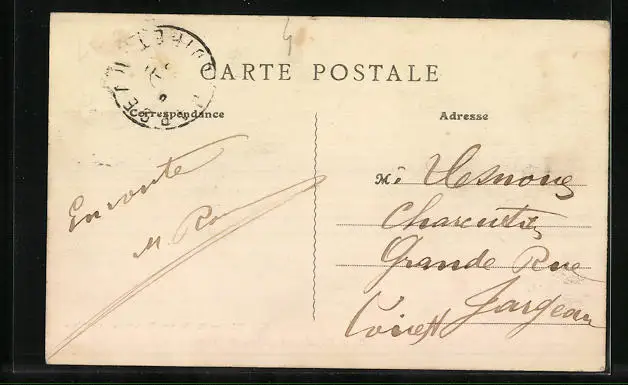 CARTE POSTALE
Correspondance
Adresse
En route
M.
M.
Charcutier
Grande Rue
Jargeau
Loiret